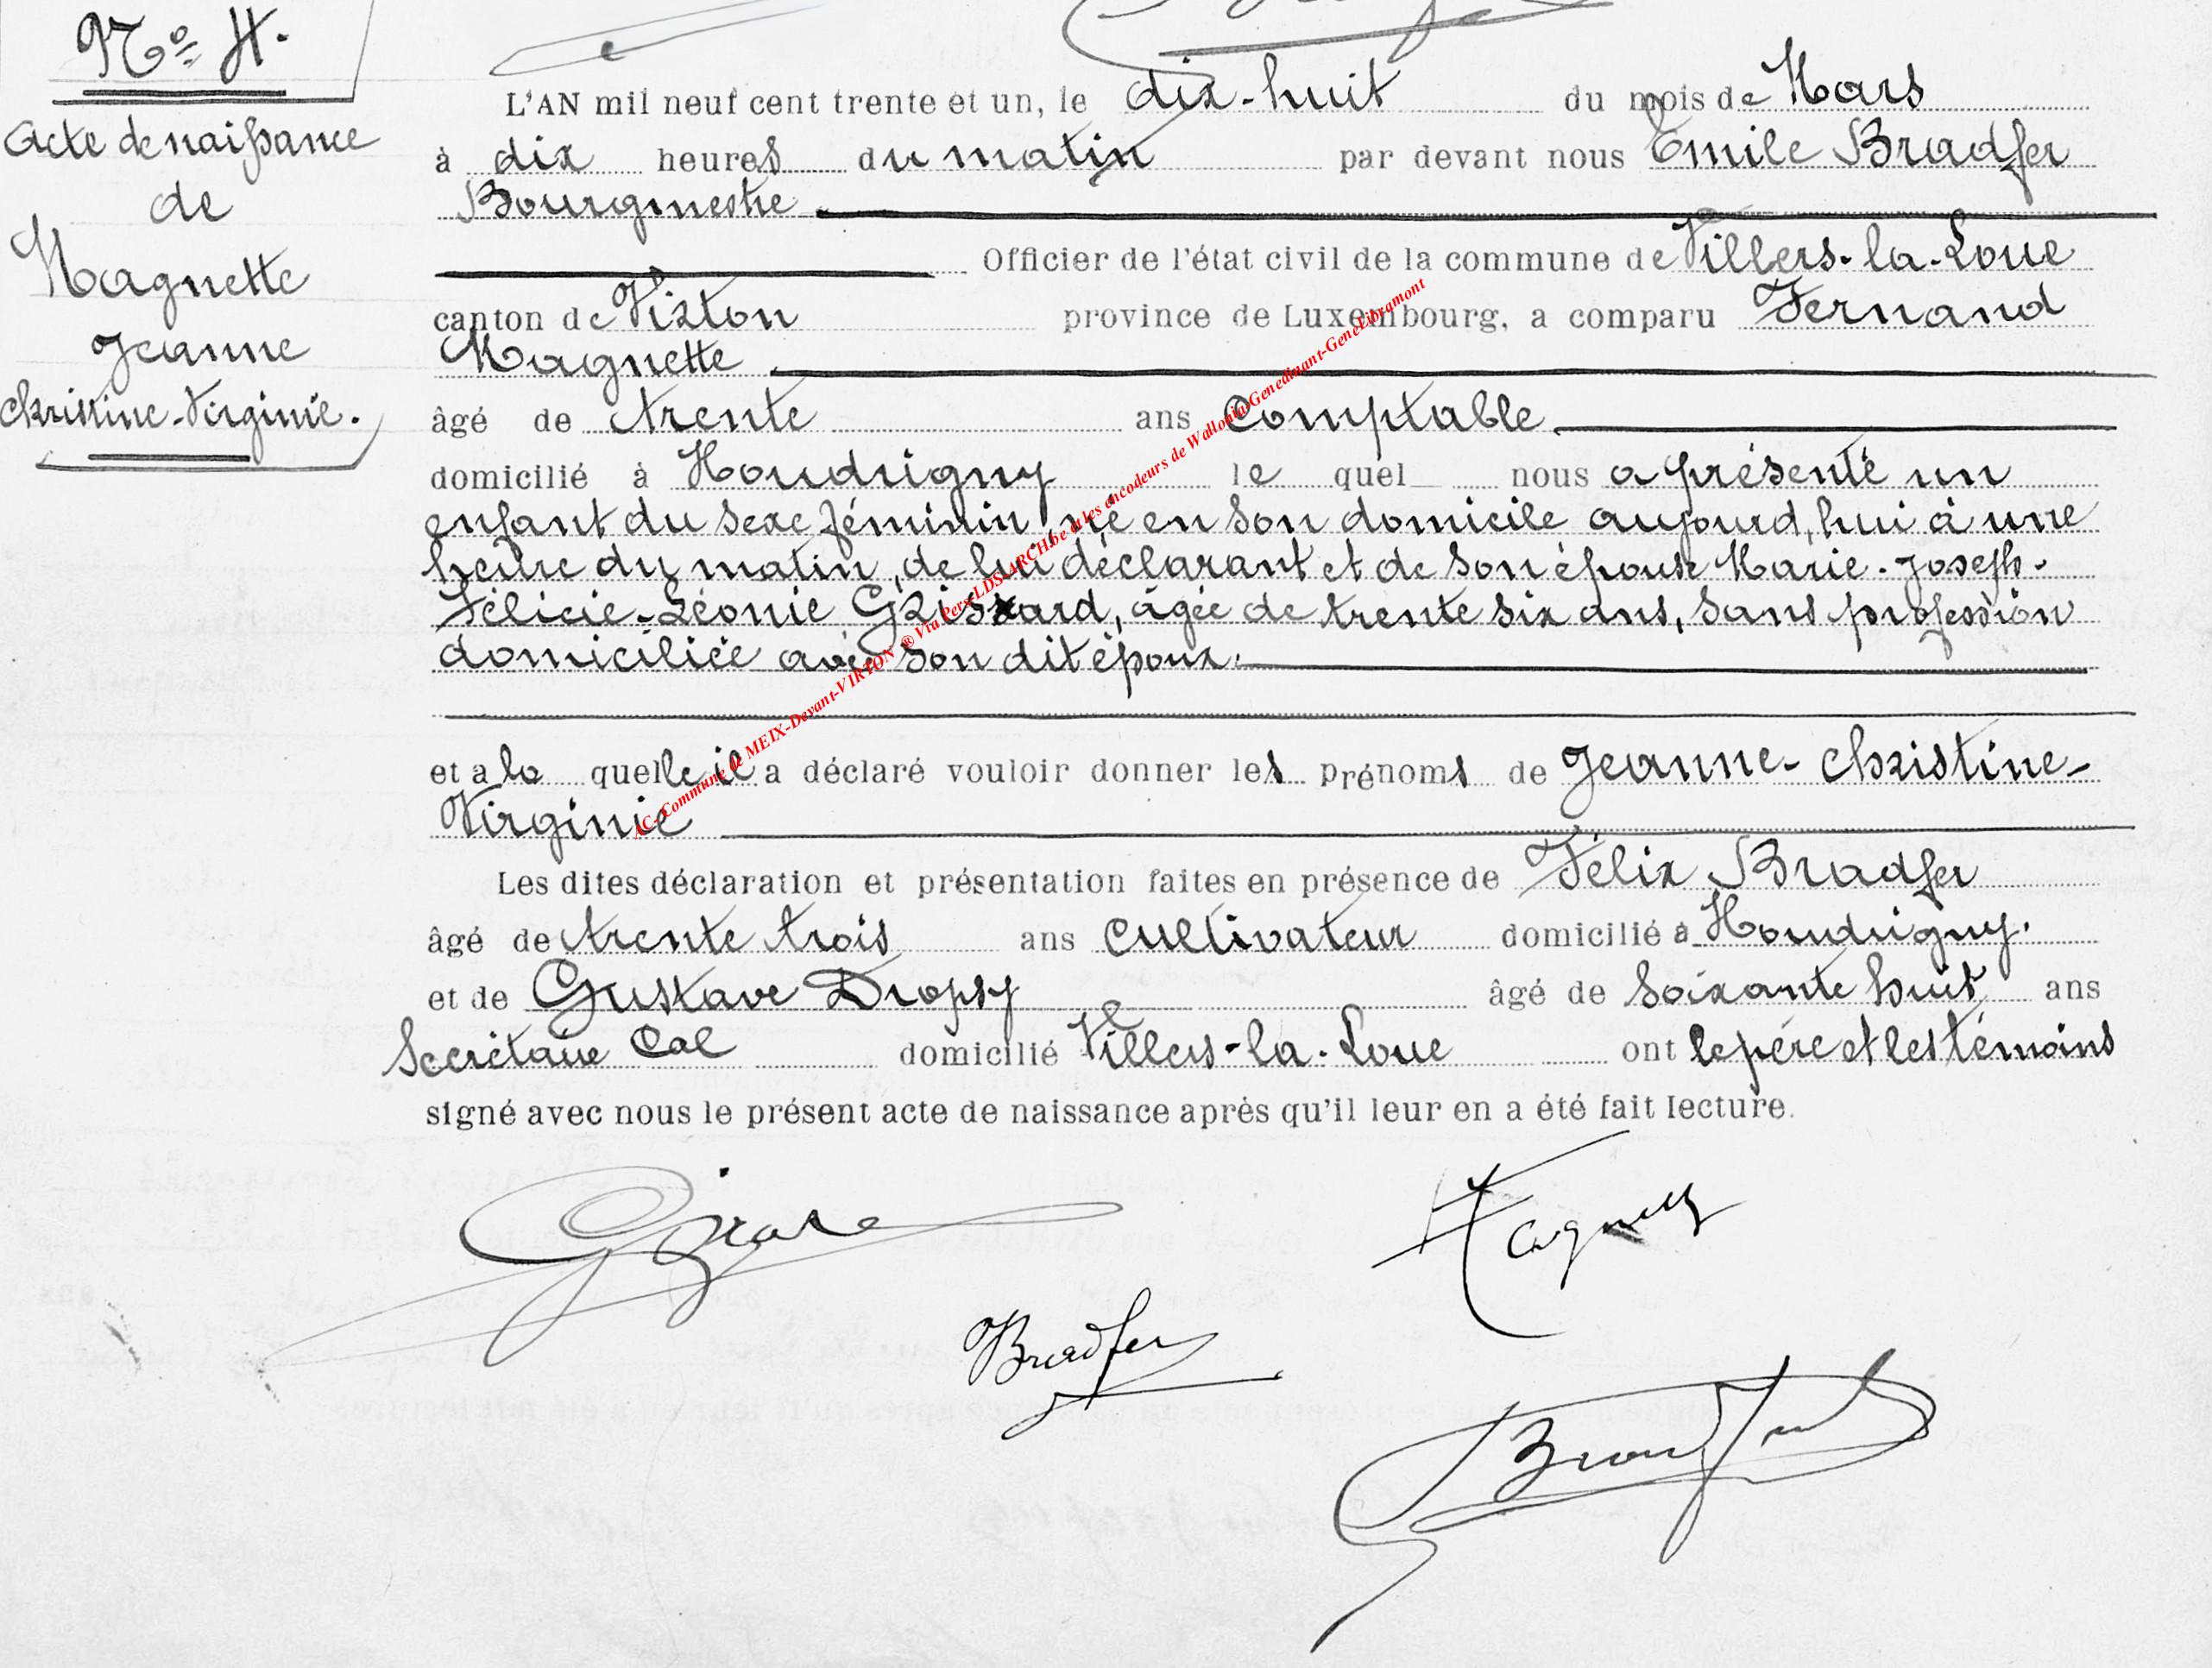 No 4.
Acte de naissance
de
Magnette
Jeanne
Christine-Virginie.
L'AN mil neuf cent trente et un, le dix-huit du mois de Mars
à dix heures du matin par devant nous Emile Bradfer
Bourgmestre
Officier de l'état civil de la commune de Villers-la-Loue
canton de Virton province de Luxembourg, a comparu Fernand
Magnette
âgé de trente ans comptable
domicilié à Houdrigny le quel nous a présenté un
enfant du sexe féminin, né en son domicile aujourd'hui à une
heure du matin, de lui déclarant et de son épouse Marie-Joseph-
Félicie-Léonie Grissard, âgée de trente six ans, sans profession
domiciliée avec son dit époux.
et a la quelle il a déclaré vouloir donner les prénoms de Jeanne-Christine-
Virginie
Les dites déclaration et présentation faites en présence de Félix Bradfer
âgé de trente trois ans cultivateur domicilié à Houdrigny.
et de Gustave Dropsy âgé de soixante huit ans
Secrétaire Cal domicilié Villers-la-Loue ont le père et les témoins
signé avec nous le présent acte de naissance après qu'il leur en a été fait lecture.
Bradfer
AC-Commune de MEIX-Devant-VIRTON ® Via Pers-LDS-ARCH.be et les encodeurs de Wallonia-Genedinant-GeneLibramont